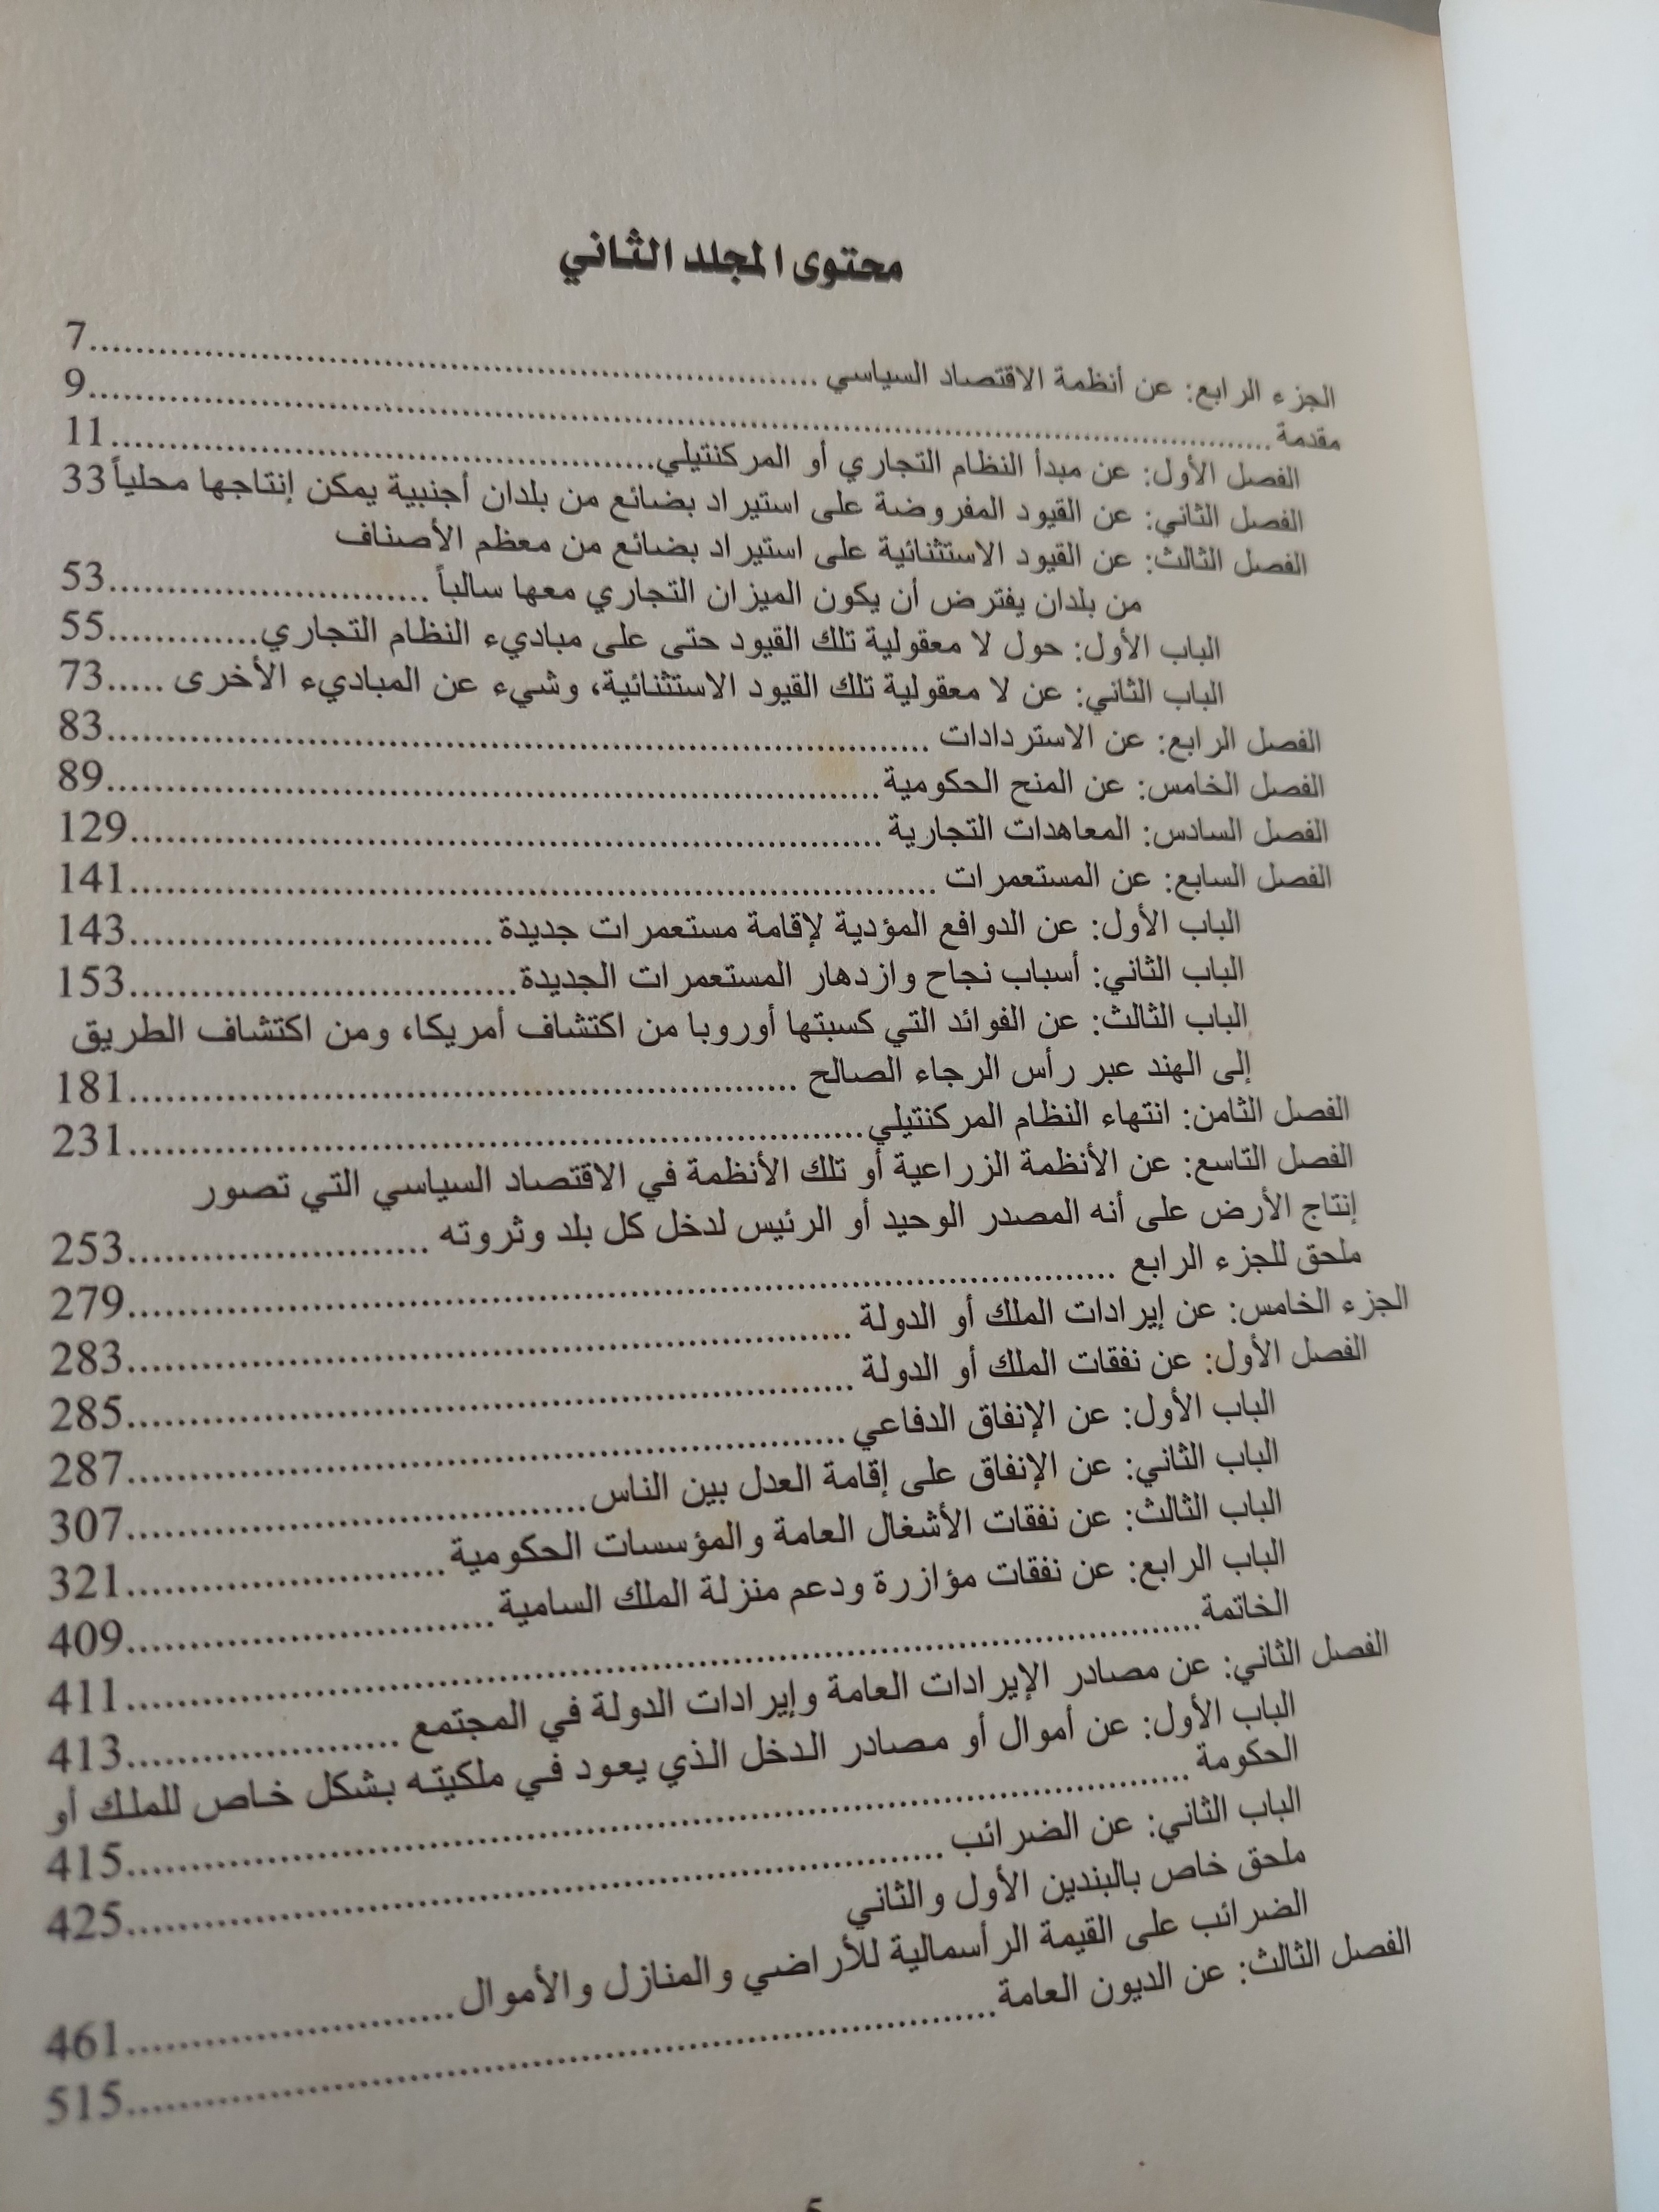 محتوى المجلد الثاني
الجزء الرابع: عن أنظمة الاقتصاد السياسي ............ 7
مقدمة ............ 9
الفصل الأول: عن مبدأ النظام التجاري أو المركنتيلي ............ 11
الفصل الثاني: عن القيود المفروضة على استيراد بضائع من بلدان أجنبية يمكن إنتاجها محلياً 33
الفصل الثالث: عن القيود الاستثنائية على استيراد بضائع من معظم الأصناف
من بلدان يفترض أن يكون الميزان التجاري معها سالباً ............ 53
الباب الأول: حول لا معقولية تلك القيود حتى على مباديء النظام التجاري ............ 55
الباب الثاني: عن لا معقولية تلك القيود الاستثنائية، وشيء عن المباديء الأخرى ..... 73
الفصل الرابع: عن الاستردادات ............ 83
الفصل الخامس: عن المنح الحكومية ............ 89
الفصل السادس: المعاهدات التجارية ............ 129
الفصل السابع: عن المستعمرات ............ 141
الباب الأول: عن الدوافع المؤدية لإقامة مستعمرات جديدة ............ 143
الباب الثاني: أسباب نجاح وازدهار المستعمرات الجديدة ............ 153
الباب الثالث: عن الفوائد التي كسبتها أوروبا من اكتشاف أمريكا، ومن اكتشاف الطريق
إلى الهند عبر رأس الرجاء الصالح ............ 181
الفصل الثامن: انتهاء النظام المركنتيلي ............ 231
الفصل التاسع: عن الأنظمة الزراعية أو تلك الأنظمة في الاقتصاد السياسي التي تصور
إنتاج الأرض على أنه المصدر الوحيد أو الرئيس لدخل كل بلد وثروته ............ 253
ملحق للجزء الرابع ............ 279
الجزء الخامس: عن إيرادات الملك أو الدولة ............ 283
الفصل الأول: عن نفقات الملك أو الدولة ............ 285
الباب الأول: عن الإنفاق الدفاعي ............ 287
الباب الثاني: عن الإنفاق على إقامة العدل بين الناس ............ 307
الباب الثالث: عن نفقات الأشغال العامة والمؤسسات الحكومية ............ 321
الباب الرابع: عن نفقات مؤازرة ودعم منزلة الملك السامية ............ 409
الخاتمة ............ 411
الفصل الثاني: عن مصادر الإيرادات العامة وإيرادات الدولة في المجتمع ............ 413
الباب الأول: عن أموال أو مصادر الدخل الذي يعود في ملكيته بشكل خاص للملك أو
الحكومة ............ 415
الباب الثاني: عن الضرائب ............ 425
ملحق خاص بالبندين الأول والثاني
الضرائب على القيمة الرأسمالية للأراضي والمنازل والأموال ............ 461
الفصل الثالث: عن الديون العامة ............ 515
5